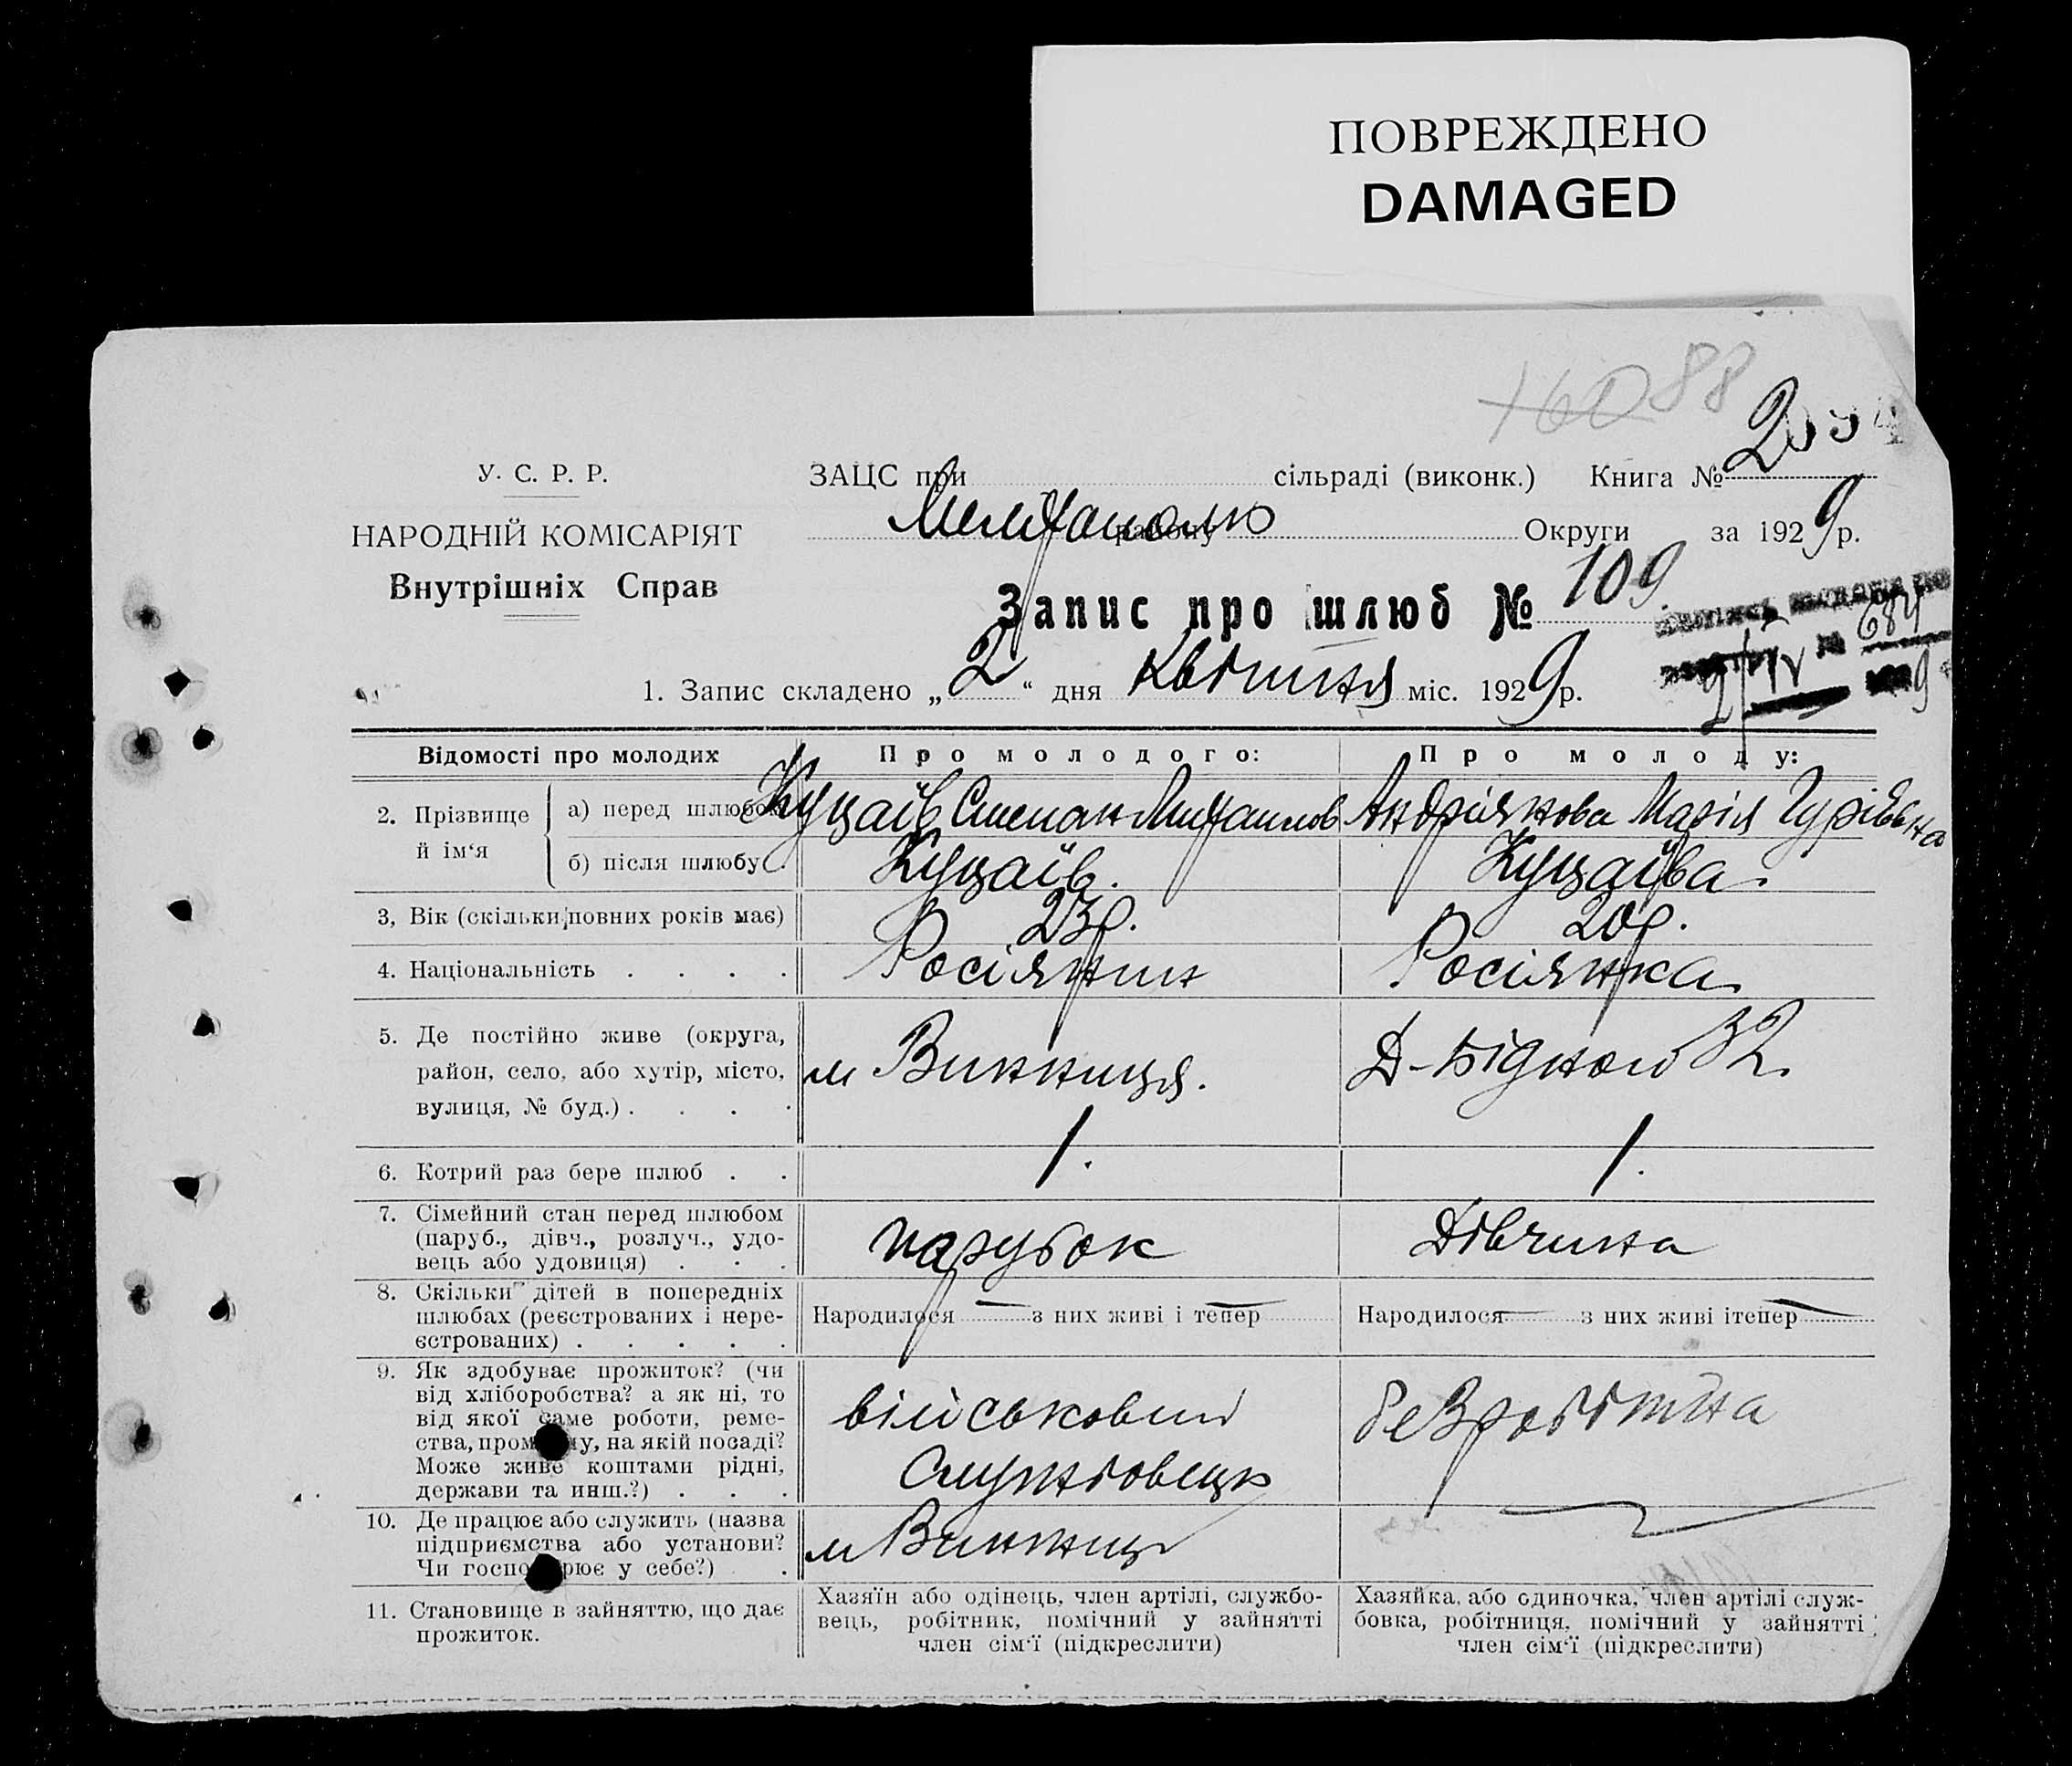 ПОВРЕЖДЕНО
DAMAGED
88
У. С. Р. Р.
НАРОДНІЙ КОМІСАРІЯТ
Внутрішніх Справ
ЗАЦС при сільраді (виконк.) Книга №
району Округи за 1929 р.
Запис про шлюб № 109
684
1. Запис складено „2“ дня Квітня міс. 1929 р.
Відомості про молодих
Про молодого:
Про молоду:
2. Прізвище й ім‘я
а) перед шлюбом
Куцаїв Степан Михаилов
Андріякова Марія Гуріївна
б) після шлюбу
Куцаїв.
Куцаїва.
3, Вік (скільки повних років має)
23 р.
20 р.
4. Національність . . . .
Росіянин
Росіянка
5. Де постійно живе (округа,
район, село, або хутір, місто,
вулиця, № буд.) . . . .
м Винниця.
Д-Бідною 32
6. Котрий раз бере шлюб . .
1.
1.
7. Сімейний стан перед шлюбом
(паруб., дівч., розлуч., удо-
вець або удовиця) . . .
парубок
Дівчина
8. Скільки дітей в попередніх
шлюбах (реєстрованих і нере-
єстрованих) . . . . .
Народилося — з них живі і тепер —
Народилося — з них живі ітепер —
9. Як здобуває прожиток? (чи
від хліборобства? а як ні, то
від якої саме роботи, реме-
ства, на якій посаді?
Може живе коштами рідні,
держави та инш.?) . . .
військовий
Служговець
безробітна
10. Де працює або служить (назва
підприємства або установи?
Чи у себе?) .
м Винниц
11. Становище в зайняттю, що дає
прожиток.
Хазяїн або одінець, член артілі, службо-
вець, робітник, помічний у зайнятті
член сім‘ї (підкреслити)
Хазяйка, або одиночка, член артілі служ-
бовка, робітниця, помічний у зайнятті
член сім‘ї (підкреслити)